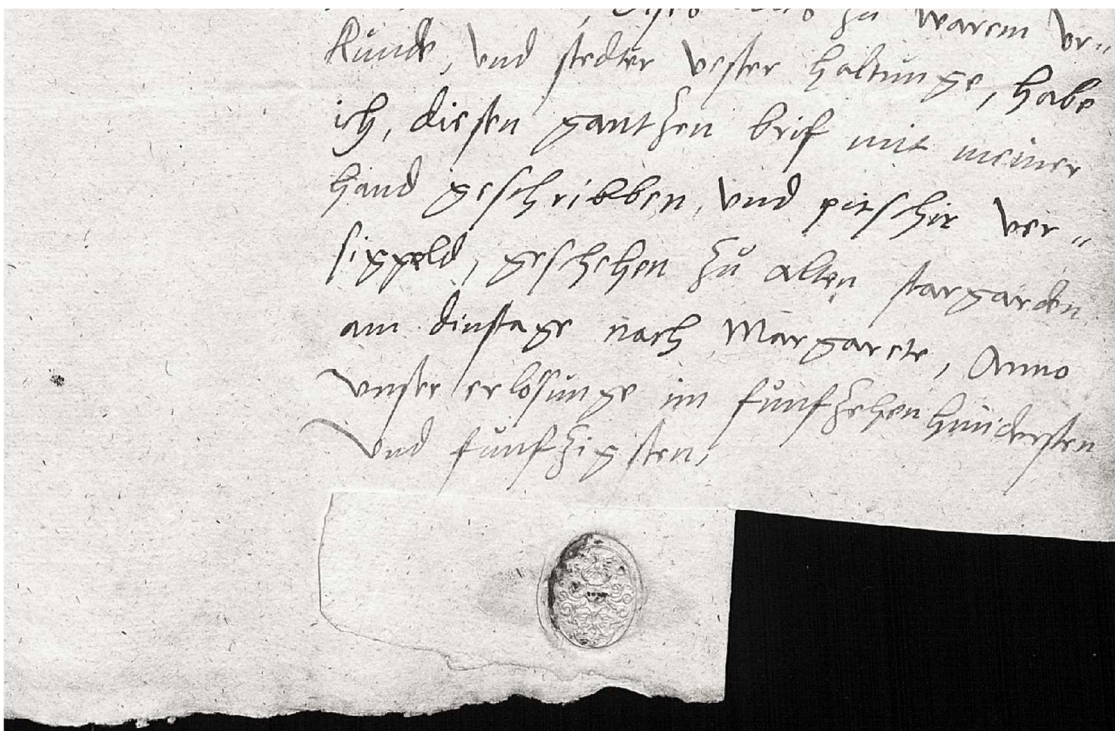 zu warem vr=
kunde, vnd stedter vester haltunge, habe
ich, diesen gantzen brif mit meiner
hand geschribben, vnd pitschir ver=
siggeld, geschehen zu alten stargarden
am dinstage nach Margarete, Anno
vnser erlosunge im funfzehenhundersten
vnd funfzigsten,